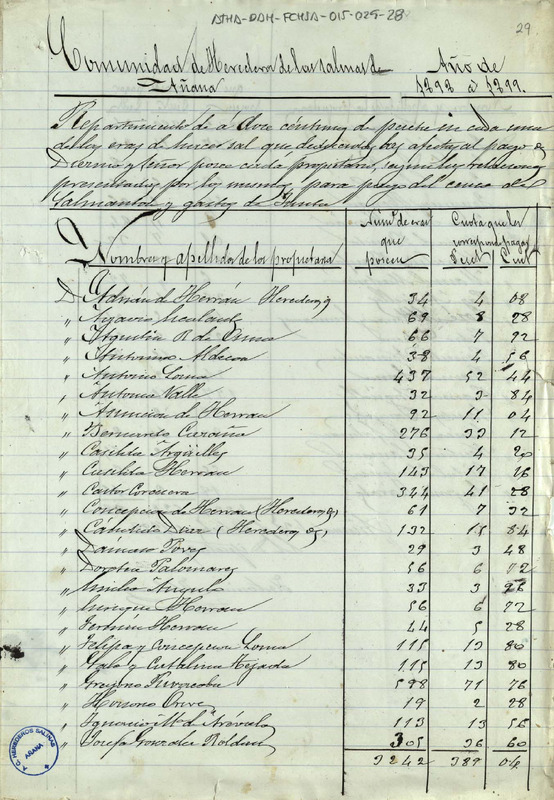 ATHA-DAH-FCHSA-015-029-28
29
Comunidad de Herederos de las Salinas de Añana
Año de 1898 a 1899.
Repartimiento de á doce céntimos de peseta en cada una
de las eras de hacer sal que
Diezmo y tenor posee cada propietario, segun las relaciones
presentadas por los mismos para pago del censo de
Salmantón y gastos de Junta
Nombres y apellidos de los propietarios
Núm.º de eras que poseen
Cuota que les corresponde pagar
Pset Cent
D. Adrián de Herrán Herederos 34 4 08
" 69 8 28
" Agustin R. de Osma 66 7 92
" Antonino Aldecoa 38 4 56
" Antonio Loma 437 52 44
" Antonia Valle 32 3 84
" Asuncion de Herran 92 11 04
" Bernardo 276 33 12
" Casilda Argüelles 35 4 20
" Casilda Herran 143 17 16
" Castor Corcuera 344 41 28
" Concepcion de Herran (Herederos) 61 7 32
" Diaz (Herederos) 132 15 84
" Dámaso Poves 29 3 48
" Dorotea Palomares 56 6 72
" Emilio Angulo 33 3 96
" Enrique Herran 56 6 72
" Fermin Herran 44 5 28
" Felipa y Concepcion Loma 115 13 80
" Gala y Catalina Tejada 115 13 80
" 598 71 76
" Honorio Orive 19 2 28
" Ignacio M.ª de Arévalo 113 13 56
" Josefa Gonzalez Roldan 305 36 60
3242 389 04
A.C. HEREDEROS SALINAS
AÑANA